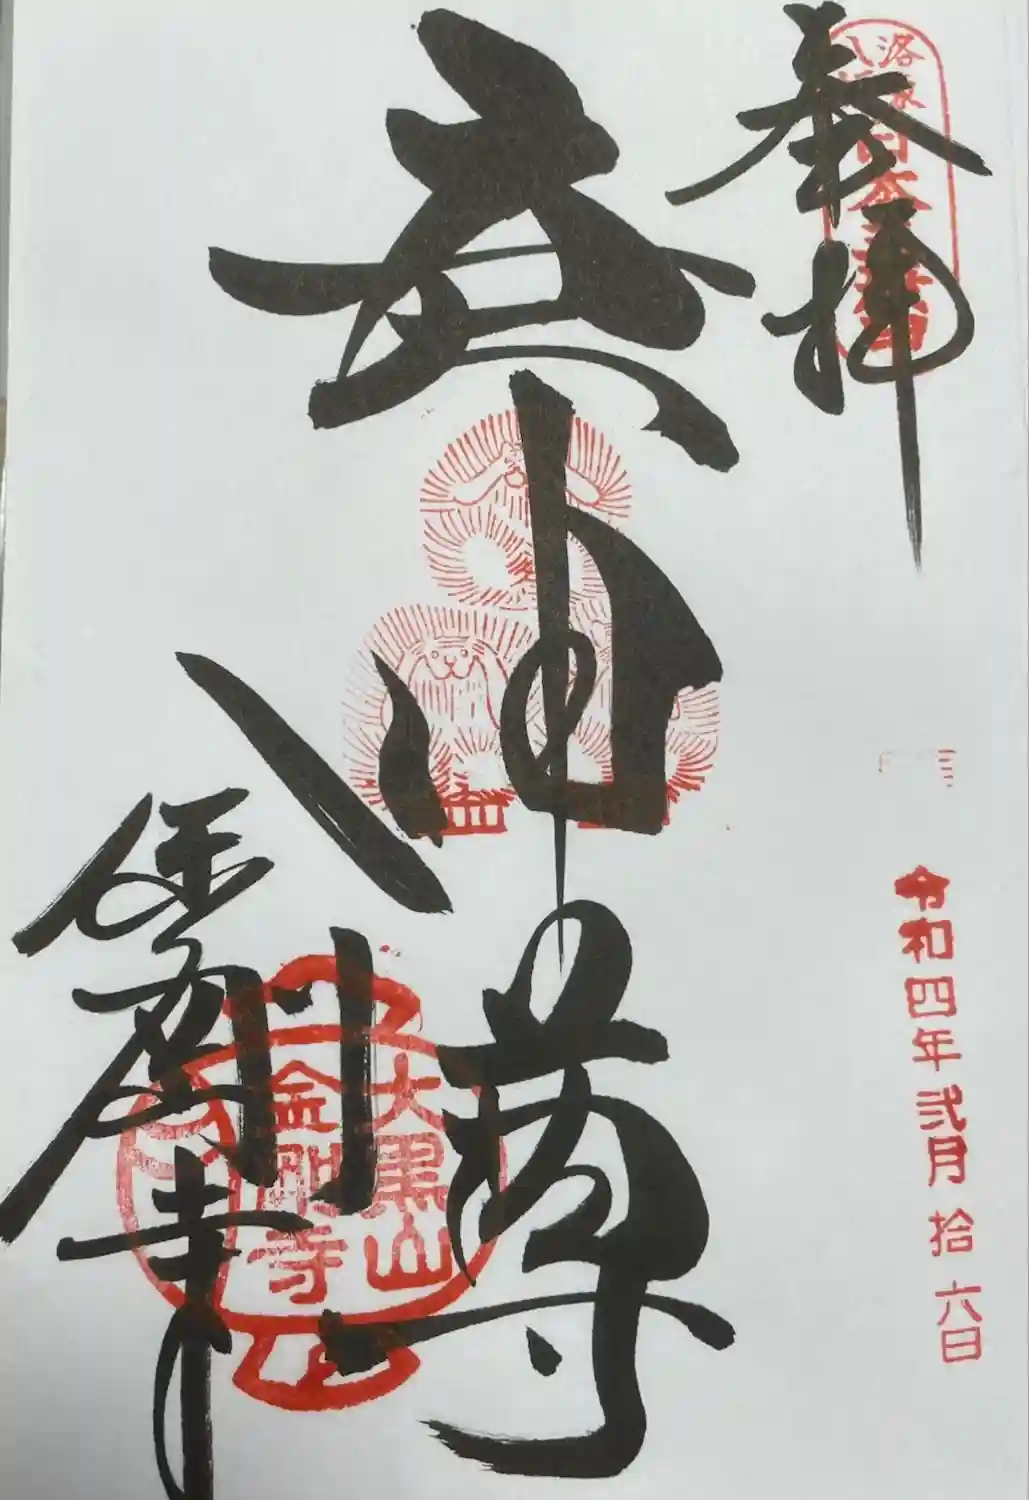 奉拝
洛東
日本三庚申
庚申尊
金剛寺
大黒山
金剛寺
令和四年弐月拾六日